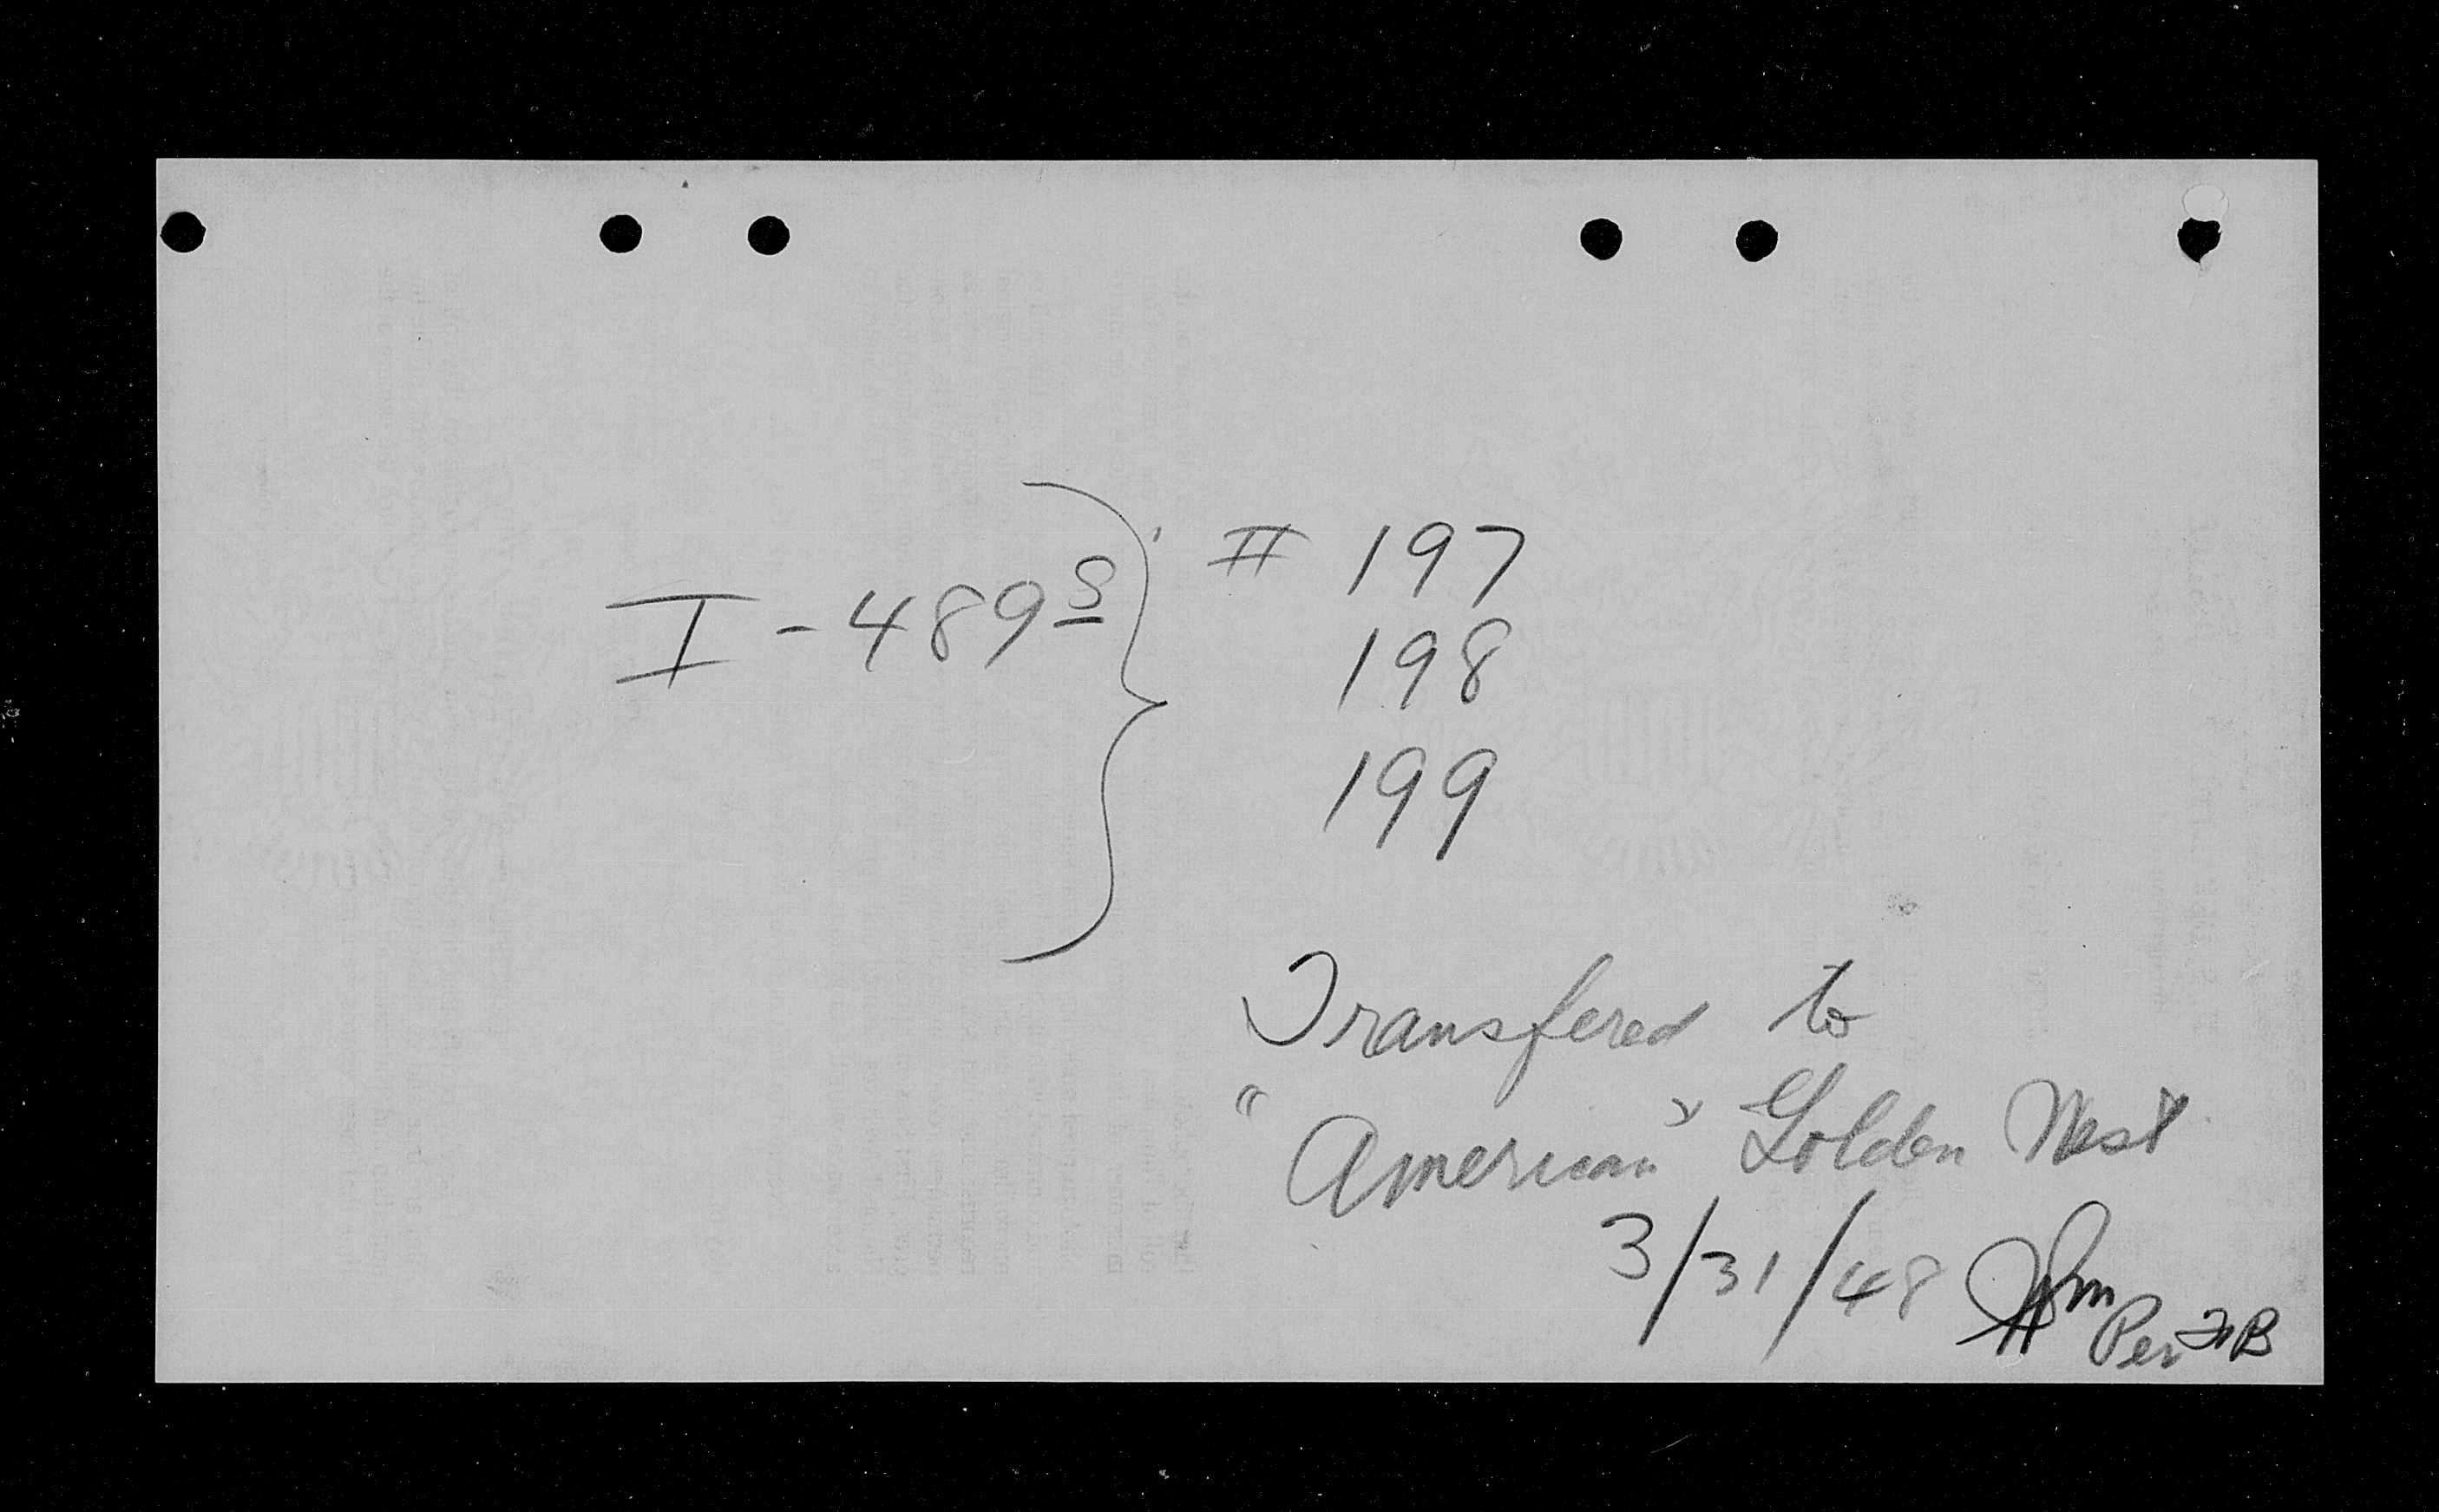 I-489 S } # 197
198
199
Transfered to
"American" Golden West
3/31/48
Per FB